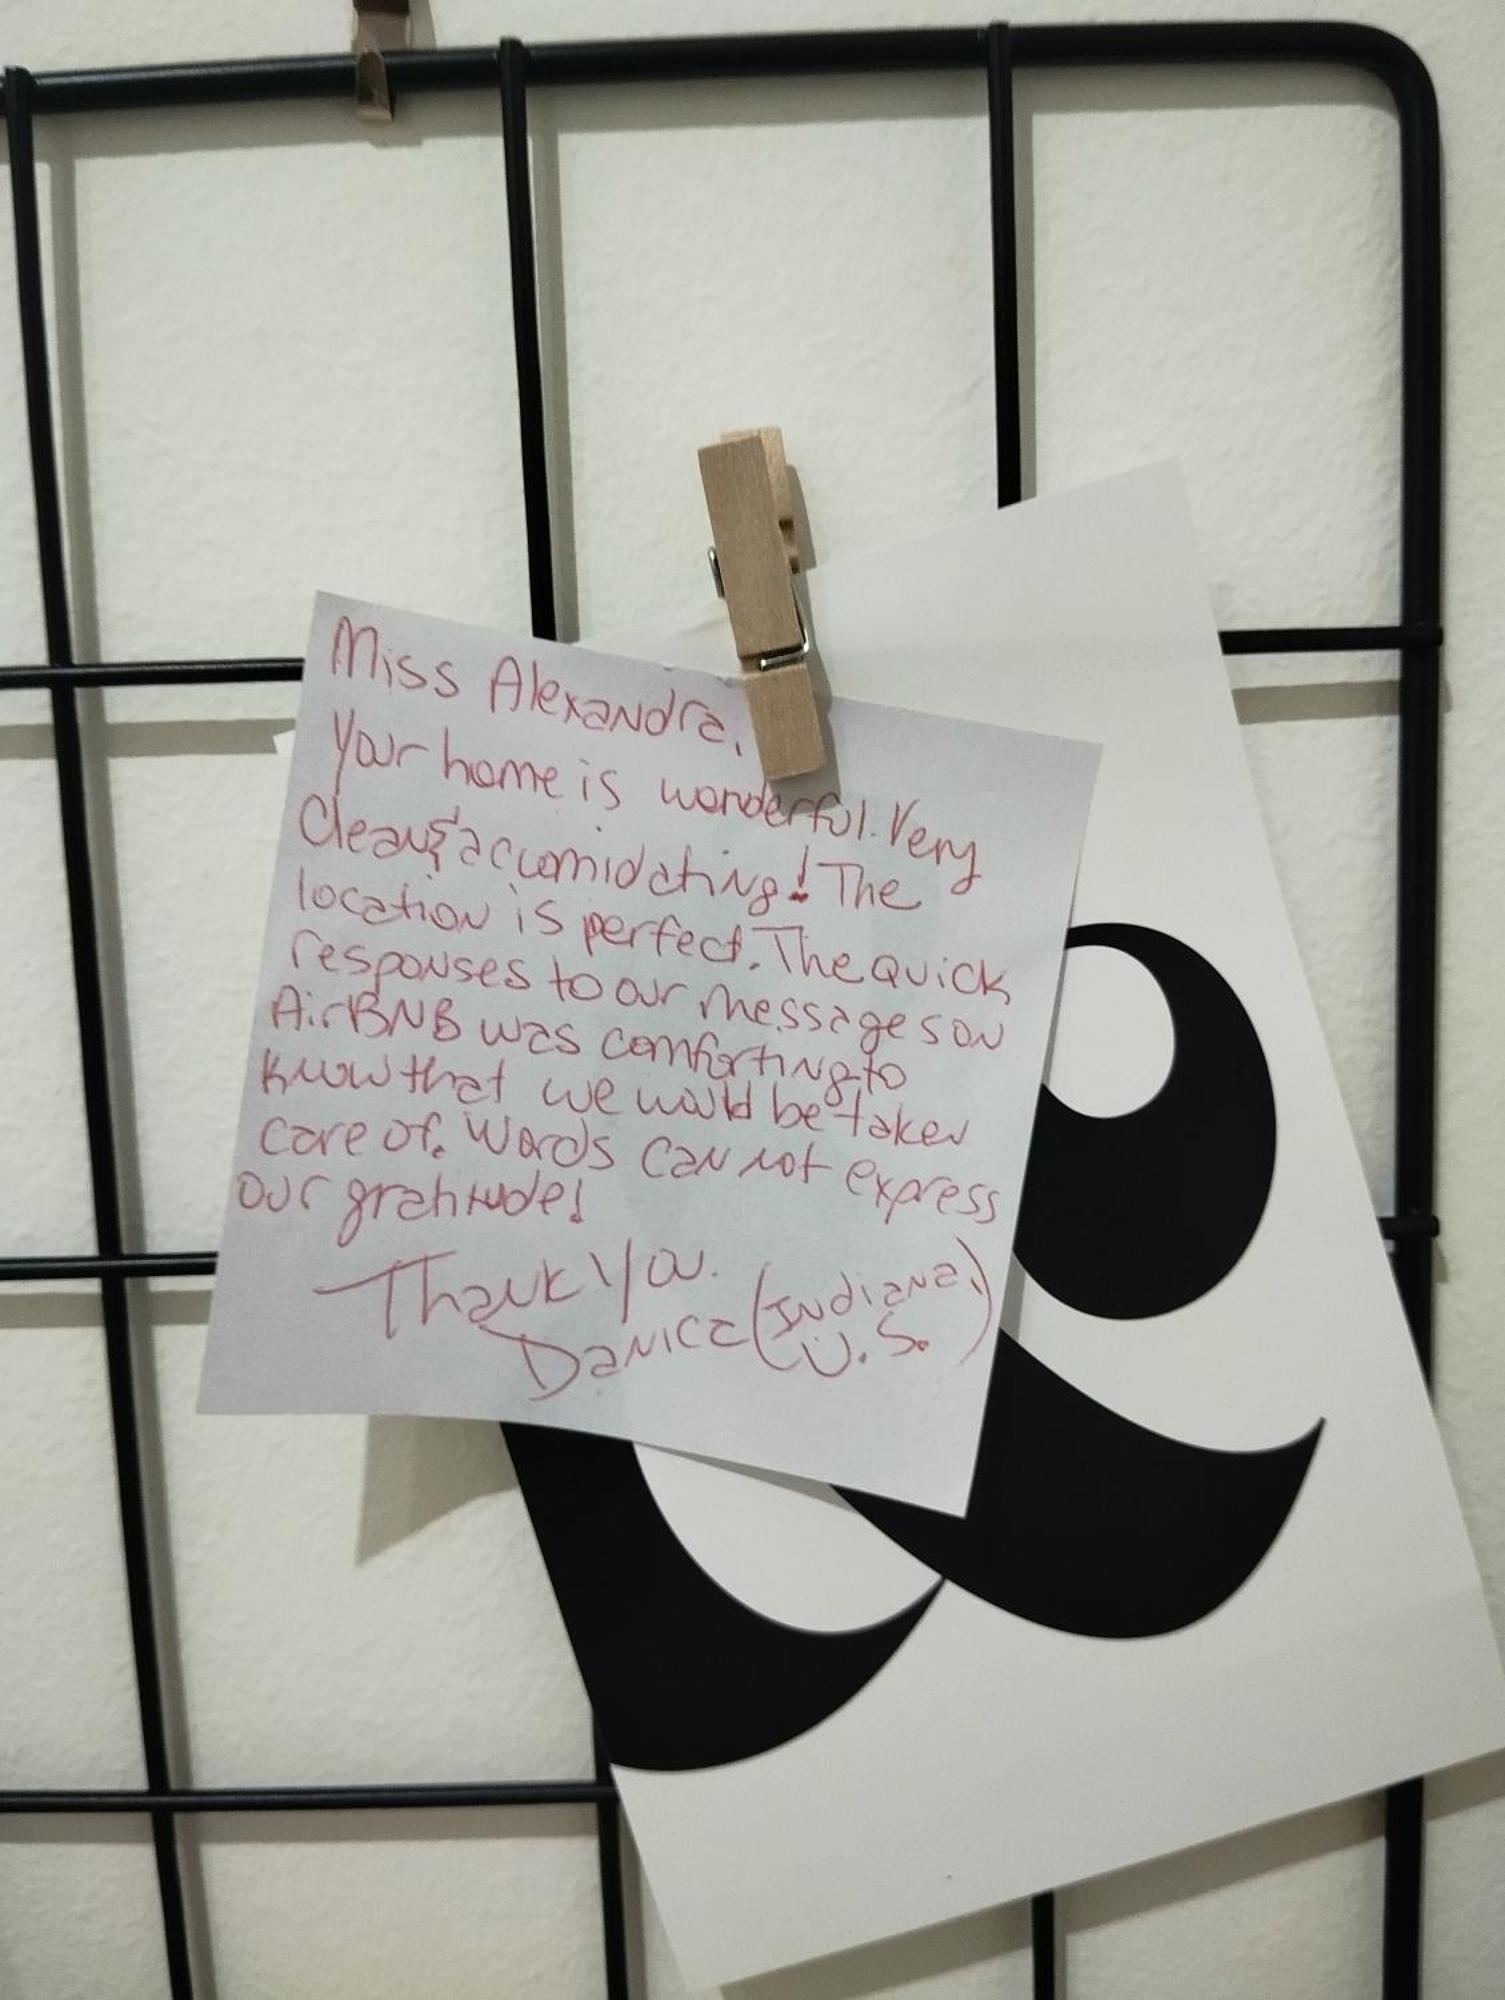 Miss Alexandra,
Your home is wonderful. Very
Clean & accumidating! The
location is perfect. The quick
responses to our messages on
AirBNB was comforting to
know that we would be taken
care of. Words can not express
our gratitude!
Thank You.
Danica (Indiana,
U.S.)
&